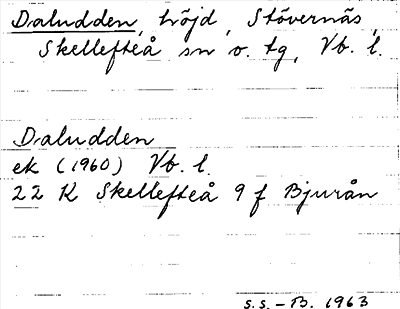 Daludden, höjd, Stövernäs,
Skellefteå sn o. tg, Vb. l.
Daludden
ek (1960) Vb. l.
22 K Skellefteå 9 f Bjurån
S.S. - B. 1963